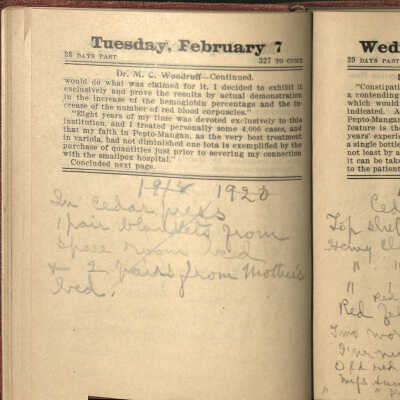 Tuesday, February 7
38 DAYS PAST
327 TO COME
Dr. M. C. Woodruff—Continued.
would do what was claimed for it. I decided to exhibit it
exclusively and prove the results by actual demonstration
in the increase of the hemoglobin percentage and the in-
crease of the number of red blood corpuscles."
"Eight years of my time was devoted exclusively to this
institution, and I treated personally some 4,006 cases, and
that my faith in Pepto-Mangan, as the very best treatment
in variola, had not diminished one iota is exemplified by the
purchase of quantities just prior to severing my connection
with the smallpox hospital."
Concluded next page.
1920
In Cedar press
1 pair blankets from
spare room bed
& 2 pairs from Mother's
bed.
Wedn
39 DAYS PAST
"Constipati
a contending
which would
indicated. A
Pepto-Mangan
feature is the
years' experie
a single bottle
not least by a
it can be take
to the patient
Ced
Top shel
Heavy
"
"
Red
Red
Two wo
Old red